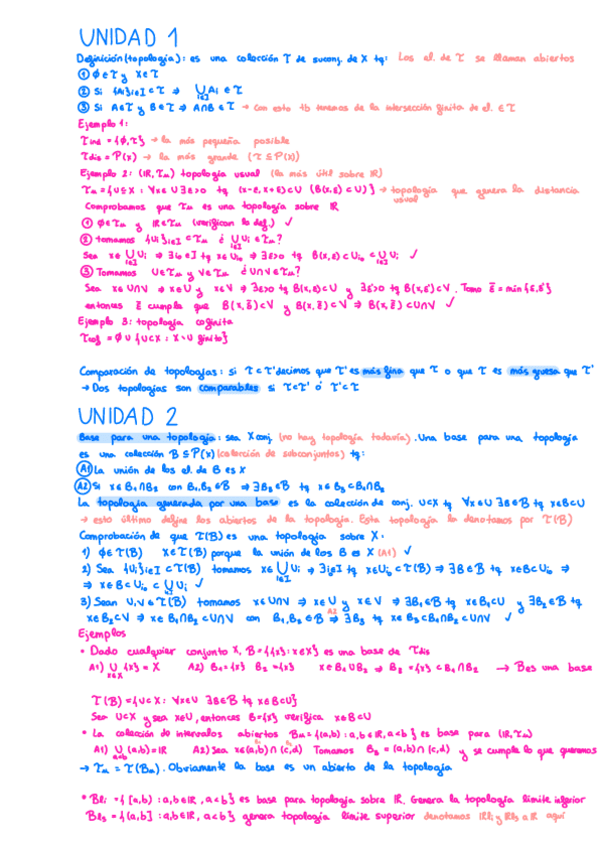 UNIDAD 1
Definición (topología): es una colección τ de subconj. de X tq: Los el. de τ se llaman abiertos
① ∅∈τ y X∈τ
② Si {Ai}i∈I ⊂ τ ⇒ ⋃i∈I Ai ∈ τ
③ Si A∈τ y B∈τ ⇒ A∩B∈τ → Con esto tb tenemos de la intersección finita de el. ∈ τ
Ejemplo 1:
τind = {∅,τ} → la más pequeña posible
τdis = P(x) → la más grande (τ ⊆ P(x))
Ejemplo 2: (ℝ, τu) topología usual (la más útil sobre ℝ)
τu = {U⊆X : ∀x∈U ∃ε>0 tq (x-ε, x+ε)⊂U (B(x,ε)⊂U)} → topología usual que genera la distancia
Comprobamos que τu es una topología sobre ℝ
① ∅∈τu y ℝ∈τu (verifican la def.) ✓
② tomamos {Ui}i∈I ⊂ τu ¿ ⋃i∈I Ui ∈ τu?
Sea x∈ ⋃i∈I Ui ⇒ ∃i0∈I tq x∈Ui0 ⇒ ∃ε>0 tq B(x,ε)⊂Ui0 ⊂ ⋃i∈I Ui ✓
③ Tomamos U∈τu y V∈τu ¿U∩V∈τu?
Sea x∈U∩V ⇒ x∈U y x∈V ⇒ ∃ε>0 tq B(x,ε)⊂U y ∃ε̃>0 tq B(x,ε̃)⊂V. Tomo ε̄ = min{ε,ε̃}
entonces ε̄ cumple que B(x,ε̄)⊂V y B(x,ε̄)⊂V ⇒ B(x,ε̄)⊂U∩V ✓
Ejemplo 3: topología cofinita
τcof = ∅∪{U⊂X : X∖U finito}
Comparación de topologías: si τ⊂τ' decimos que τ' es más fina que τ o que τ es más gruesa que τ'
→ Dos topologías son comparables si τ⊂τ' ó τ'⊂τ
UNIDAD 2
Base para una topología: sea X conj. (no hay topología todavía). Una base para una topología
es una colección B⊆P(x) (colección de subconjuntos) tq:
A1) La unión de los el. de B es X
A2) Si x∈B1∩B2 con B1,B2∈B ⇒ ∃B3∈B tq x∈B3⊂B1∩B2
La topología generada por una base es la colección de conj. U⊂X tq ∀x∈U ∃B∈B tq x∈B⊂U
→ esto último define los abiertos de la topología. Esta topología la denotamos por τ(B)
Comprobación de que τ(B) es una topología sobre X.
1) ∅∈τ(B) X∈τ(B) porque la unión de los B es X (A1) ✓
2) Sea {Ui}i∈I ⊂ τ(B) tomamos x∈ ⋃i∈I Ui ⇒ ∃i0∈I tq x∈Ui0⊂τ(B) ⇒ ∃B∈B tq x∈B⊂Ui0 ⇒
⇒ x∈B⊂Ui0 ⊂ ⋃i∈I Ui ✓
3) Sean U,V∈τ(B) tomamos x∈U∩V ⇒ x∈U y x∈V ⇒ ∃B1∈B tq x∈B1⊂U y ∃B2∈B tq
x∈B2⊂V ⇒ x∈B1∩B2⊂U∩V con B1,B2∈B ⇒ A2 ∃B3 tq x∈B3⊂B1∩B2⊂U∩V ✓
Ejemplos
• Dado cualquier conjunto X, B={{x}: x∈X} es una base de τdis
A1) ⋃x∈X {x} = X A2) B1={x} B2={x} x∈B1∪B2 ⇒ B3={x}⊂B1∩B2 → B es una base
τ(B) = {U⊂X : ∀x∈U ∃B∈B tq x∈B⊂U}
Sea U⊂X y sea x∈U, entonces B={x} verifica x∈B⊂U
• La colección de intervalos abiertos Bu={(a,b): a,b∈ℝ, a<b} es base para (ℝ,τu)
A1) ⋃a<b (a,b)=ℝ A2) Sea x∈(a,b)∩(c,d) Tomamos B3=(a,b)∩(c,d) y se cumple lo que queremos
→ τu = τ(Bu). Obviamente la base es un abierto de la topología
• Bli = {[a,b) : a,b∈ℝ, a<b} es base para topología sobre ℝ. Genera la topología límite inferior
Bls = {(a,b] : a,b∈ℝ, a<b} genera topología límite superior denotamos ℝli y ℝls a ℝ aquí